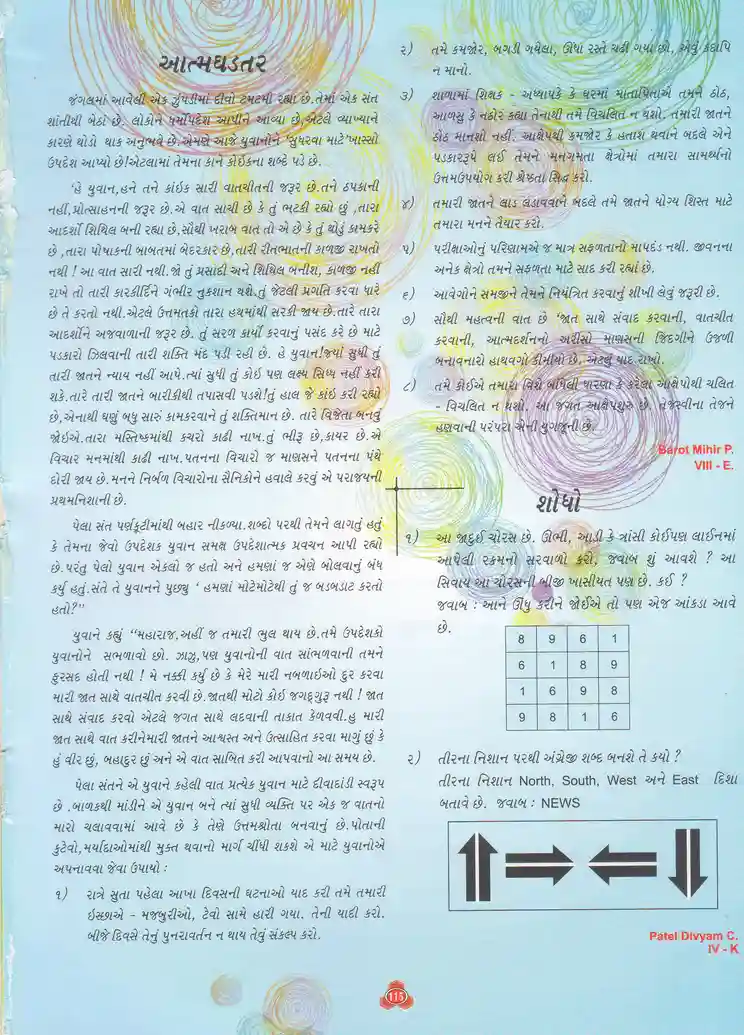 આત્મઘડતર
જંગલમાં આવેલી એક ઝુંપડીમાં દીવો ટમટમી રહ્યા છે.તેમાં એક સંત
શાંતીથી બેઠાં છે. લોકોને ધર્માપદેશ આપીને આવ્યા છે,એટલે વ્યાખ્યાને
કારણે થોડો થાક અનુભવે છે.એમણે આજે યુવાનોને ‘સુધરવા માટે’ખાસ્સો
ઉપદેશ આપ્યો છે!એટલામાં તેમના કાને કોઈકના શબ્દે પડે છે.
‘હે યુવાન,હને તને કાંઇક સારી વાતચીતની જરૂર છે.તને ઠપકાની
નહીં,પ્રોત્સાહનની જરૂર છે.એ વાત સાચી છે કે તું ભટકી રહ્યો છું ,તારા
આદર્શો શિથિલ બની રહ્યા છે,સૌથી ખરાબ વાત તો એ છે કે તું થોડું કામકરે
છે ,તારા પોષાકની બાબતમાં બેદરકાર છે,તારી રીતભાતની કાળજી રાખતો
નથી ! આ વાત સારી નથી.જો તું પ્રસાદી અને શિથિલ બનીશ, કાળજી નહીં
રાખે તો તારી કારકીર્દિને ગંભીર નુકશાન થશે.તું જેટલી પ્રગતિ કરવા ધારે
છે તે કરતો નથી.એટલે ઉત્તમતકો તારા હથમાંથી સરકી જાય છે.તારે તારા
આદર્શોને અજવાળાની જરૂર છે. તું સરળ કાર્યો કરવાનું પસંદ કરે છે માટે
પડકારો ઝિલવાની તારી શક્તિ મંદ પડી રહી છે. હે યુવાન!જ્યાં સુધી તું
તારી જાતને ન્યાય નહીં આપે.ત્યાં સુધી તું કોઈ પણ લક્ષ્ય સિધ્ધ નહીં કરી
શકે.તારે તારી જાતને બારીકીથી તપાસવી પડશે!તું હાલ જે કાંઇ કરી રહ્યો
છે,એનાથી ઘણું બધુ સારુ કામકરવાને તું શક્તિમાન છે. તારે વિજેતા બનવું
જોઈએ.તારા મસ્તિષ્કમાંથી કચરો કાઢી નાખ.તું ભીરૂ છે,કાયર છે.એ
વિચાર મનમાંથી કાઢી નાખ.પતનના વિચારો જ માણસને પતનના પંથે
દોરી જાય છે.મનને નિર્બળ વિચારોના સૈનિકોને હવાલે કરવું એ પરાજયની
પ્રથમનિશાની છે.
પેલા સંત પર્ણકૂટીમાંથી બહાર નીકળ્યા.શબ્દો પરથી તેમને લાગતું હતું
કે તેમના જેવો ઉપદેશક યુવાન સમક્ષ ઉપદેશાત્મક પ્રવચન આપી રહ્યો
છે.પરંતુ પેલો યુવાન એકલો જ હતો અને હમણાં જ એણે બોલવાનું બંધ
કર્યુ હતું.સંતે તે યુવાનને પુછ્યુ ‘ હમણાં મોટેમોટેથી તું જ બડબડાટ કરતો
હતો?”
યુવાને કહ્યું “મહારાજ,અહીં જ તમારી ભુલ થાય છે.તમે ઉપદેશકો
યુવાનોને સભળાવો છો. ઝાઝુ,પણ યુવાનોની વાત સાંભળવાની તમને
ફુરસદ હોતી નથી ! મે નક્કી કર્યુ છે કે મેરે મારી નબળાઈઓ દુર કરવા
મારી જાત સાથે વાતચીત કરવી છે.જાતથી મોટો કોઈ જગદ્ગુરૂ નથી ! જાત
સાથે સંવાદ કરવો એટલે જગત સાથે લદવાની તાકાત કેળવવી.હુ મારી
જાત સાથે વાત કરીનેમારી જાતને આશ્વસ્ત અને ઉત્સાહિત કરવા માગું છું કે
હું વીર છું, બહાદુર છું અને એ વાત સાબિત કરી આપવાનો આ સમય છે.
પેલા સંતને એ યુવાને કહેલી વાત પ્રત્યેક યુવાન માટે દીવાદાંડી સ્વરૂપ
છે .બાળકથી માંડીને એ યુવાન બને ત્યાં સુધી વ્યક્તિ પર એક જ વાતનો
મારો ચલાવવામાં આવે છે કે તેણે ઉત્તમશ્રોતા બનવાનું છે.પોતાની
કુટેવો,મર્યાદાઓમાંથી મુક્ત થવાનો માર્ગ ચીંધી શકશે એ માટે યુવાનોએ
અપનાવવા જેવા ઉપાયો :
૧) રાત્રે સુતા પહેલા આખા દિવસની ઘટનાઓ યાદ કરી તમે તમારી
ઇચ્છાએ - મજબુરીઓ, ટેવો સામે હારી ગયા. તેની યાદી કરો.
બીજે દિવસે તેનું પુનરાવર્તન ન થાય તેવું સંકલ્પ કરો.
૨) તમે કમજોર, બગડી ગયેલા, ઊંધા રસ્તે ચઢી ગયા છો, એવું કદાપિ
ન માનો.
૩) શાળામાં શિક્ષક - અધ્યાપકે કે ઘરમાં માતાપિતાએ તમને ઠોઠ,
આળસુ કે નઠોર કહ્યા તેનાથી તમે વિચલિત ન થશો. તમારી જાતને
ઠોઠ માનશો નહીં. આક્ષેપથી કમજોર કે હતાશ થવાને બદલે એને
પડકારરૂપે લઈ તેમને મનગમતા ક્ષેત્રોમાં તમારા સામર્થ્યનો
ઉત્તમઉપયોગ કરી શ્રેષ્ઠતા સિદ્ધ કરો.
૪) તમારી જાતને લાડ લડાવવાને બદલે તમે જાતને યોગ્ય શિસ્ત માટે
તમારા મનને તૈયાર કરો.
૫) પરીક્ષાઓનું પરિણામએ જ માત્ર સફળતાનો માપદંડ નથી. જીવનના
અનેક ક્ષેત્રો તમને સફળતા માટે સાદ કરી રહ્યાં છે.
૬) આવેગોને સમજીને તેમને નિયંત્રિત કરવાનું શીખી લેવું જરૂરી છે.
૭) સૌથી મહત્વની વાત છે ‘જાત સાથે સંવાદ કરવાની, વાતચીત
કરવાની, આત્મદર્શનનો અરીસો માણસની જિદગીને ઉજળી
બનાવનારો હાથવગો કીમીયો છે. એટલું યાદ રાખો.
૮) તમે કોઈએ તમારા વિશે બાંધેલી ધારણા કે કરેલા આક્ષેપોથી ચલિત
- વિચલિત ન થશો. આ જગત આક્ષેપશુરુ છે. તેજસ્વીના તેજને
હણવાની પરંપરા એની યુગજૂની છે.
Barot Mihir P.
VIII - E.
શોધો
૧) આ જાદુઈ ચોરસ છે. ઊભી, આડી કે ત્રાંસી કોઈપણ લાઈનમાં
આપેલી રકમનો સરવાળો કરો, જવાબ શું આવશે ? આ
સિવાય આ ચોરસની બીજી ખાસીયત પણ છે. કઈ ?
જવાબ : આને ઊંધુ કરીને જોઈએ તો પણ એજ આંકડા આવે
છે.
8 9 6 1
6 1 8 9
1 6 9 8
9 8 1 6
૨) તીરના નિશાન પરથી અંગ્રેજી શબ્દ બનશે તે કયો ?
તીરના નિશાન North, South, West અને East દિશા
બતાવે છે. જવાબ : NEWS
Patel Divyam C.
IV - K
115